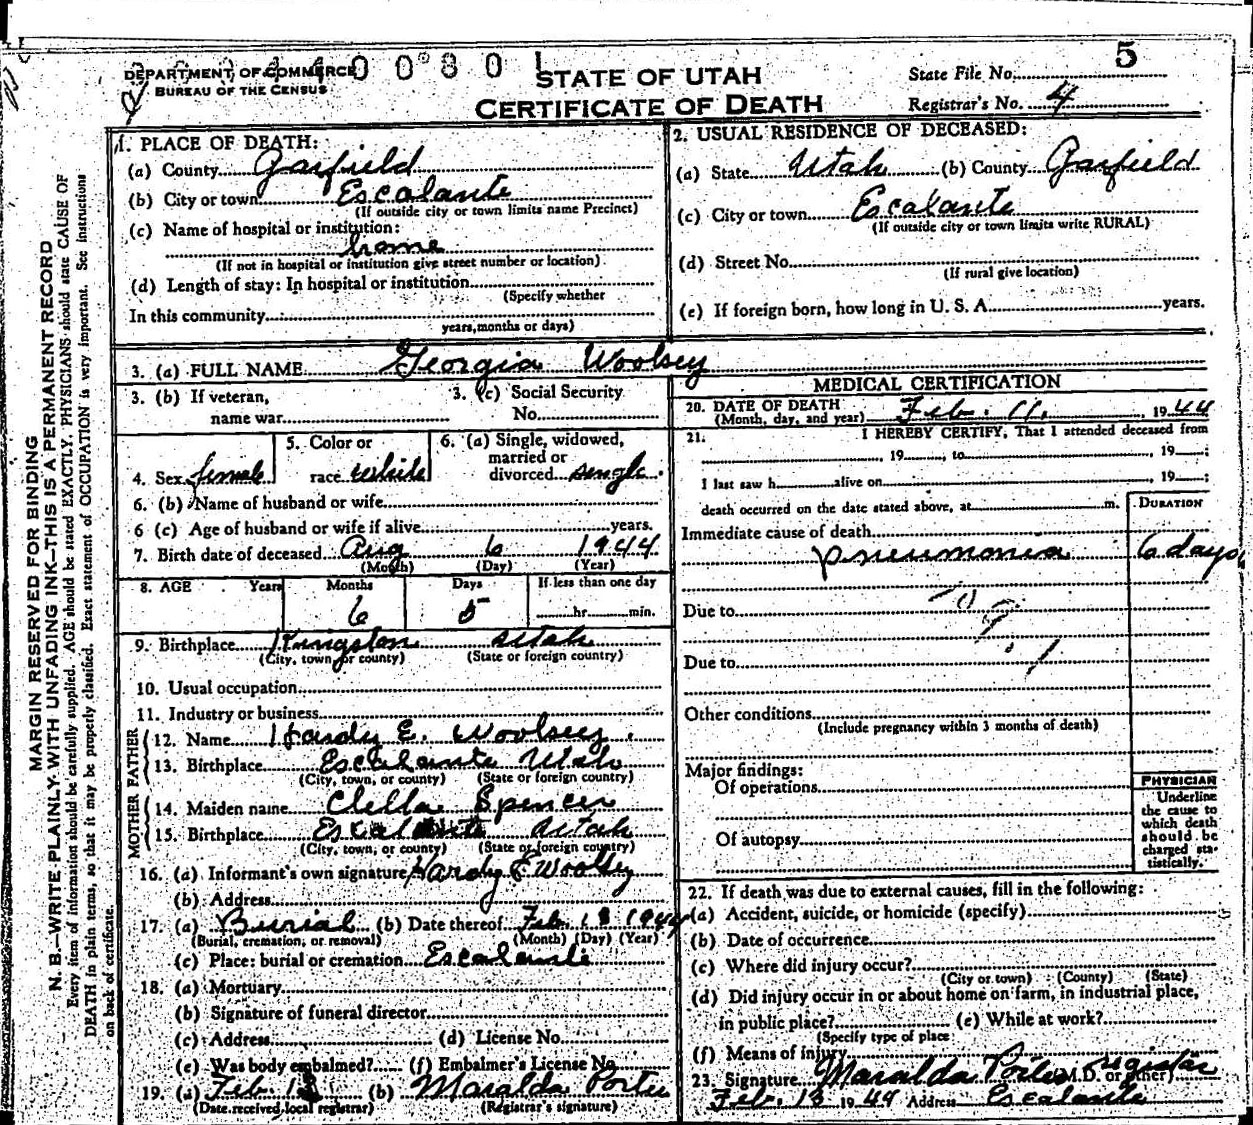 DEPARTMENT OF COMMERCE
BUREAU OF THE CENSUS
STATE OF UTAH
CERTIFICATE OF DEATH
State File No. 5
Registrar's No. 4
MARGIN RESERVED FOR BINDING
N. B.—WRITE PLAINLY WITH UNFADING INK—THIS IS A PERMANENT RECORD
Every item of information should be carefully supplied. AGE should be stated EXACTLY. PHYSICIANS should state CAUSE OF
DEATH in plain terms, so that it may be properly classified. Exact statement of OCCUPATION is very important. See instructions
on back of certificate.
1. PLACE OF DEATH:
(a) County Garfield
(b) City or town Escalante
(If outside city or town limits name Precinct)
(c) Name of hospital or institution:
home
(If not in hospital or institution give street number or location)
(d) Length of stay: In hospital or institution
(Specify whether
In this community
years, months or days)
2. USUAL RESIDENCE OF DECEASED:
(a) State Utah (b) County Garfield
(c) City or town Escalante
(If outside city or town limits write RURAL)
(d) Street No.
(If rural give location)
(e) If foreign born, how long in U. S. A. years.
3. (a) FULL NAME Georgia Woolsey
3. (b) If veteran,
name war
3. (c) Social Security
No.
4. Sex female
5. Color or
race White
6. (a) Single, widowed,
married or
divorced single
6. (b) Name of husband or wife
6 (c) Age of husband or wife if alive years.
7. Birth date of deceased Aug 6 1944
(Month) (Day) (Year)
8. AGE Years Months Days If less than one day
6 5 hr. min.
9. Birthplace Kingston Utah
(City, town or county) (State or foreign country)
10. Usual occupation
11. Industry or business
FATHER
12. Name Hardy E. Woolsey
13. Birthplace Escalante Utah
(City, town, or county) (State or foreign country)
MOTHER
14. Maiden name Clella Spencer
15. Birthplace Escalante Utah
(City, town, or county) (State or foreign country)
16. (a) Informant's own signature Hardy E Woolsey
(b) Address
17. (a) Burial (b) Date thereof Feb. 13 1944
(Burial, cremation, or removal) (Month) (Day) (Year)
(c) Place: burial or cremation Escalante
18. (a) Mortuary
(b) Signature of funeral director
(c) Address (d) License No.
(e) Was body embalmed? (f) Embalmer's License No.
19. (a) Feb. 13 (b) Maralda Porter
(Date received local registrar) (Registrar's signature)
MEDICAL CERTIFICATION
20. DATE OF DEATH
(Month, day, and year) Feb. 11. , 1944
21. I HEREBY CERTIFY, That I attended deceased from
, 19 , to , 19 ;
I last saw h alive on , 19 ;
death occurred on the date stated above, at m.
DURATION
Immediate cause of death
pneumonia 6 days
Due to
Due to
Other conditions
(Include pregnancy within 3 months of death)
Major findings:
Of operations
Of autopsy
PHYSICIAN
Underline
the cause to
which death
should be
charged sta-
tistically.
22. If death was due to external causes, fill in the following:
(a) Accident, suicide, or homicide (specify)
(b) Date of occurrence
(c) Where did injury occur?
(City or town) (County) (State)
(d) Did injury occur in or about home on farm, in industrial place,
in public place? (e) While at work?
(Specify type of place
(f) Means of injury
23. Signature Maralda Porter registrar
(M.D. or other)
Feb. 13 1944 Address Escalante